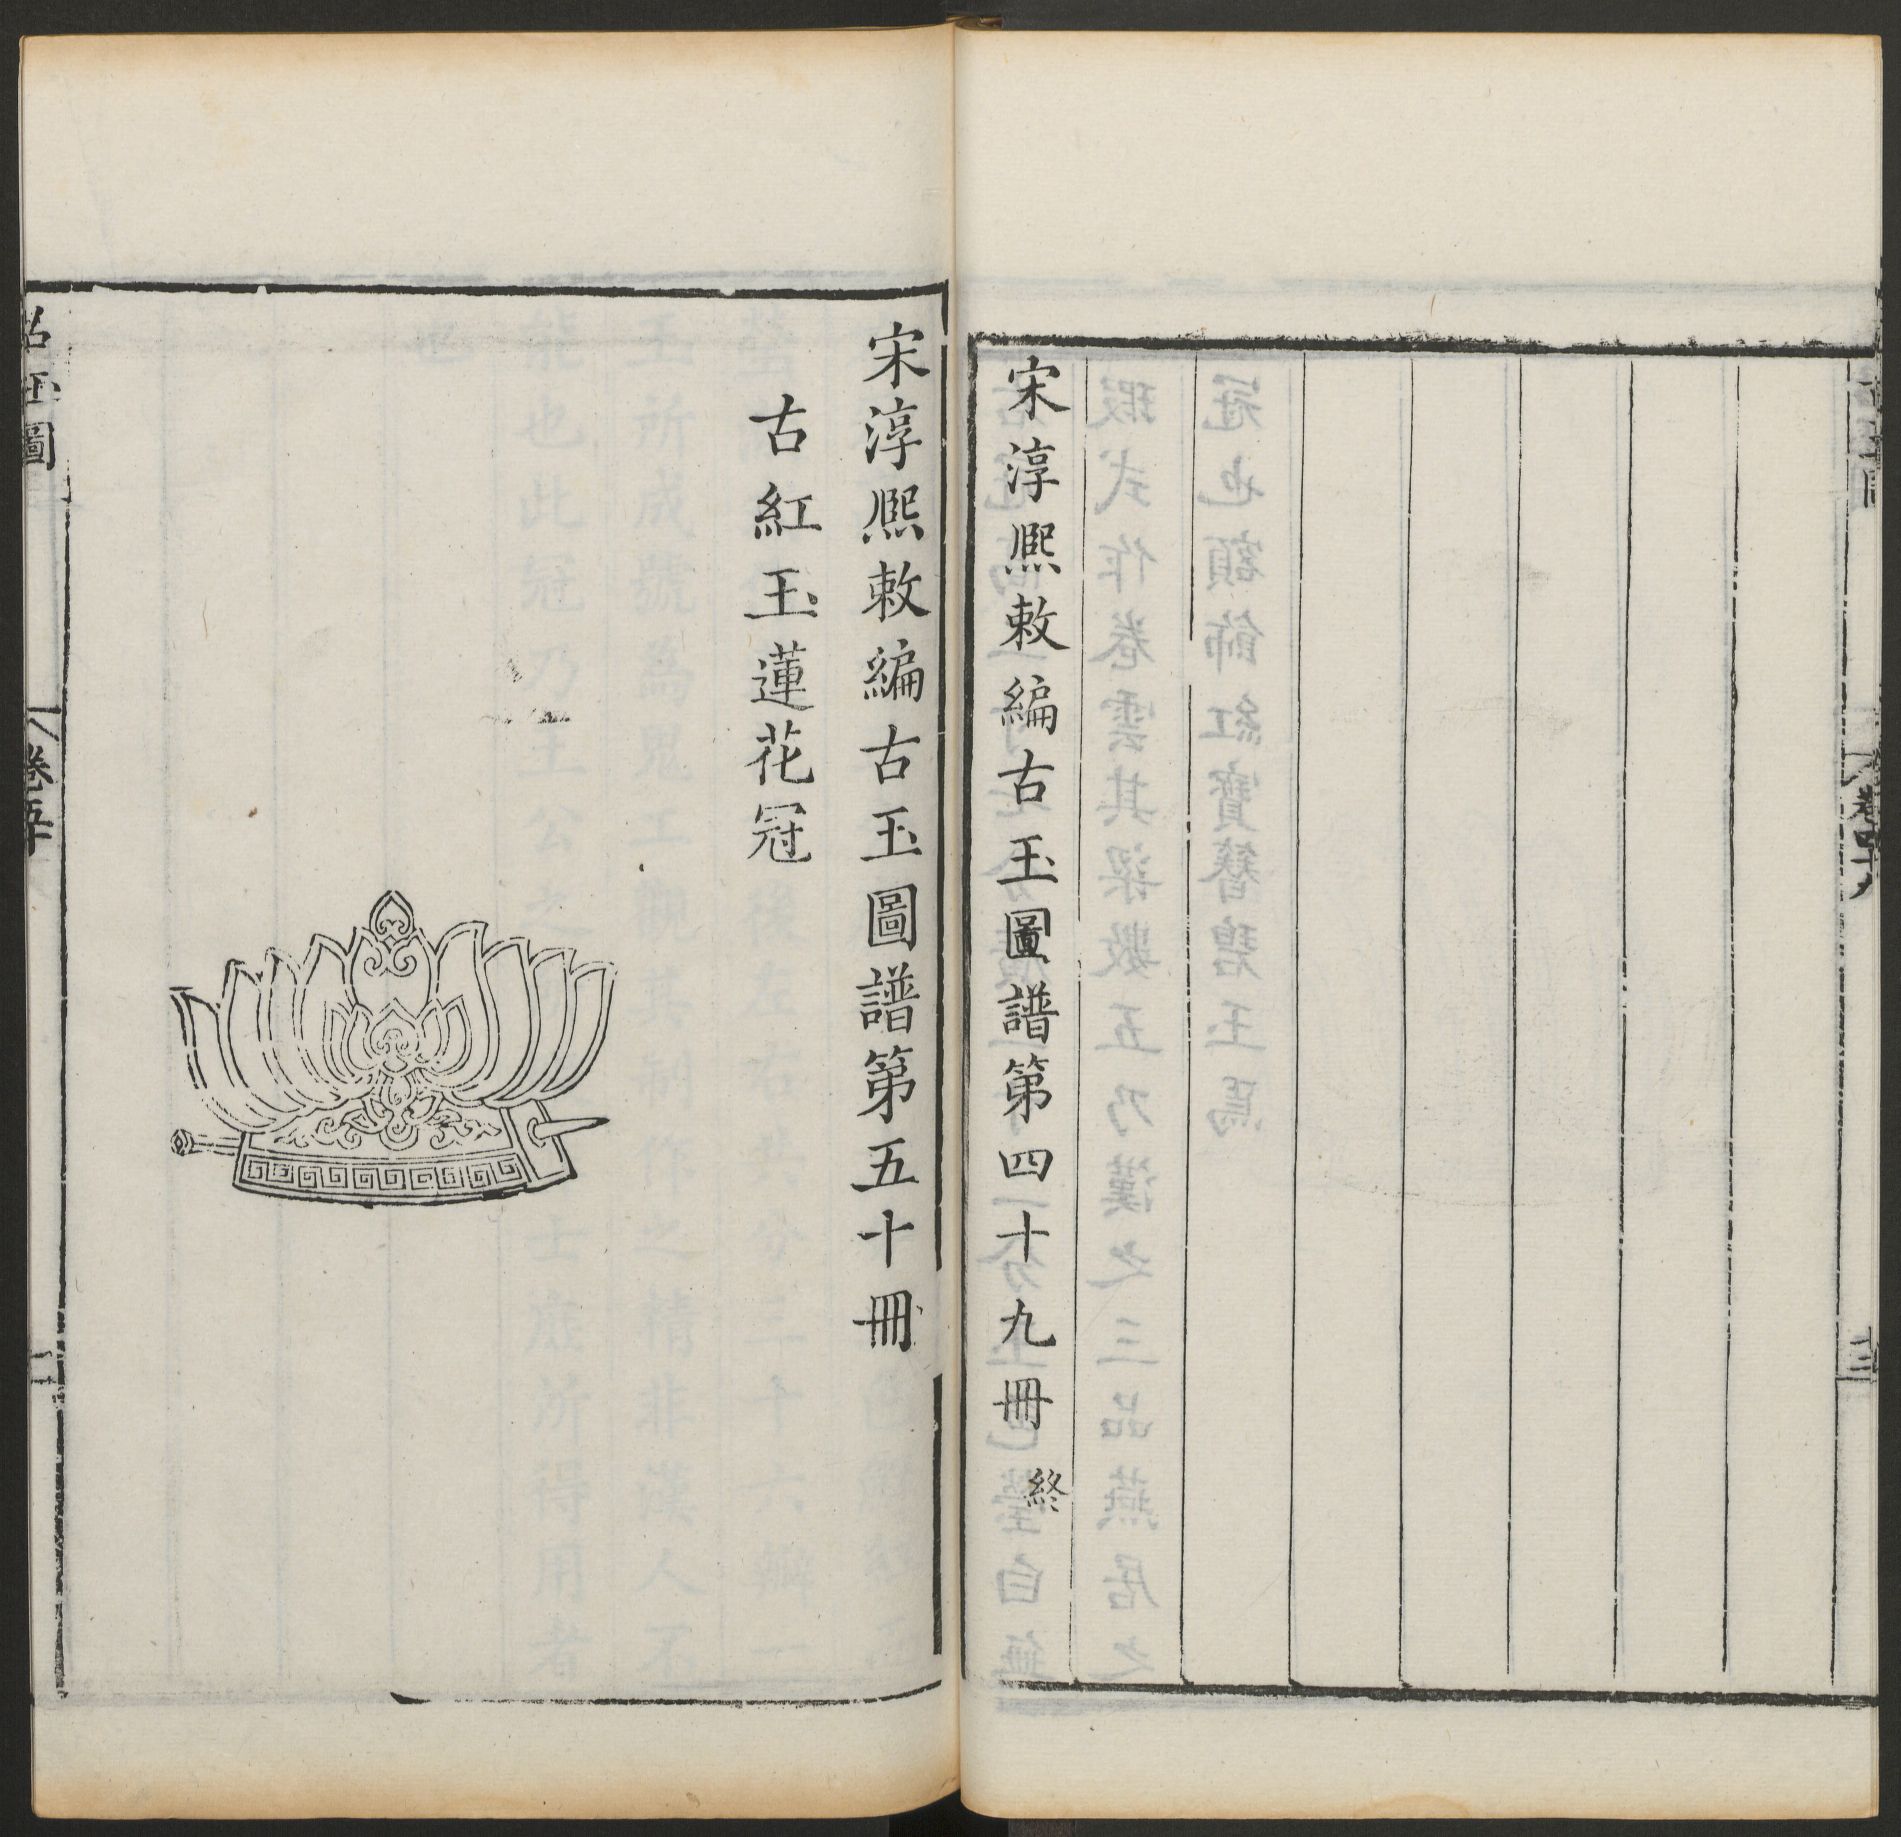 宋淳熙敕編古玉圖譜第四十九冊 終
宋淳熙敕編古玉圖譜第五十冊
古紅玉蓮花冠
古玉圖
卷五十